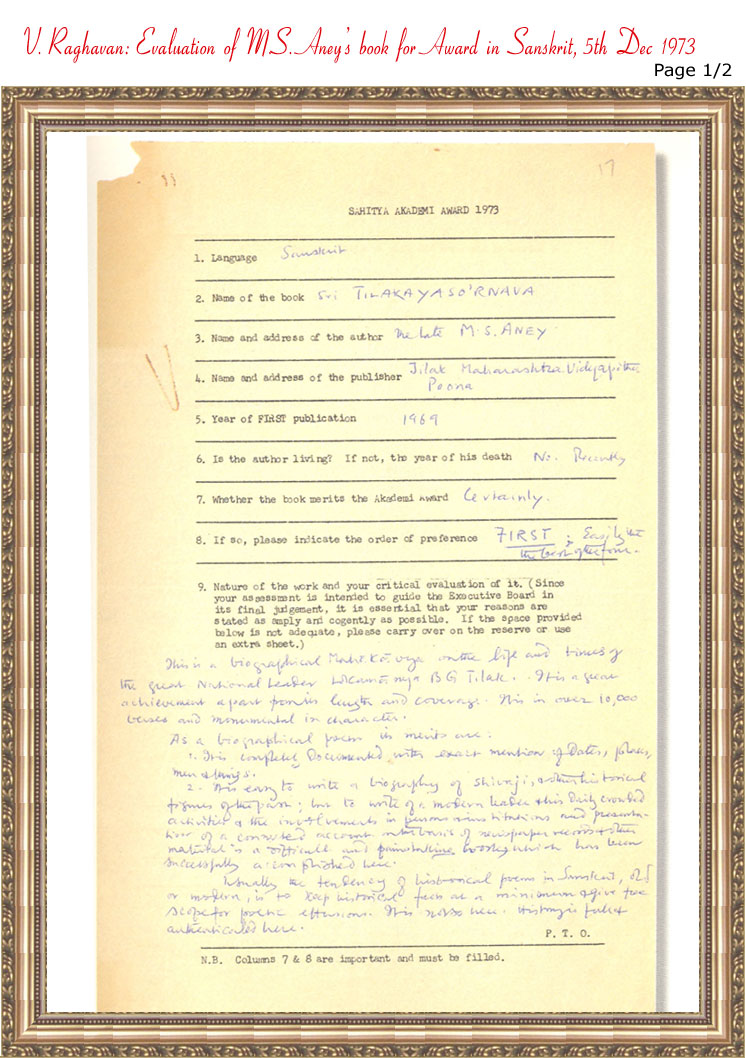 V. Raghavan: Evaluation of M.S. Aney's book for Award in Sanskrit, 5th Dec 1973
Page 1/2
17
SAHITYA AKADEMI AWARD 1973
1. Language Sanskrit
2. Name of the book Sri TILAKAYASO'RNAVA
3. Name and address of the author The late M.S. ANEY
4. Name and address of the publisher Tilak Maharashtra Vidyapitha
Poona
5. Year of FIRST publication 1969
6. Is the author living? If not, the year of his death No. Recently
7. Whether the book merits the Akademi Award Certainly.
8. If so, please indicate the order of preference FIRST; Easily the
the best of the four.
9. Nature of the work and your critical evaluation of it. (Since
your assessment is intended to guide the Executive Board in
its final judgement, it is essential that your reasons are
stated as amply and cogently as possible. If the space provided
below is not adequate, please carry over on the reserve or use
an extra sheet.)
This is a biographical Mahākāvya on the life and times of
the great National Leader Lokamānya BG Tilak. It is a great
achievement apart from its length and coverage. This in over 10,000
verses and monumental in character.
As a biographical poem its merits are:
1. It is completely Documented with exact mention of Dates, places,
men & things.
2. It is easy to write a biography of Shivaji, & other historical
figures of the past; but to write of a modern leader & his Daily crowded
activities & the involvements in persons & institutions and presenta-
tion of a connected account on the basis of newspaper records & other
material is a difficult and painstaking work, which has been
successfully accomplished here.
Usually the tendency of historical poems in Sanskrit, old
or modern, is to keep historical facts at a minimum & give free
scope for poetic effusions. It is not so here. History is fully
authenticated here.
P. T. O.
N.B. Columns 7 & 8 are important and must be filled.